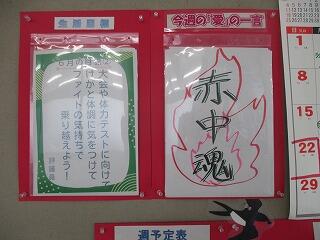 生活目標
大会や体力テストに向けて
声かけと体調に気をつけて
ファイトの気持ちで
乗り越えよう!
評議員
今週の「愛」の一言
赤中魂
週予定表
1
8
15
22
29